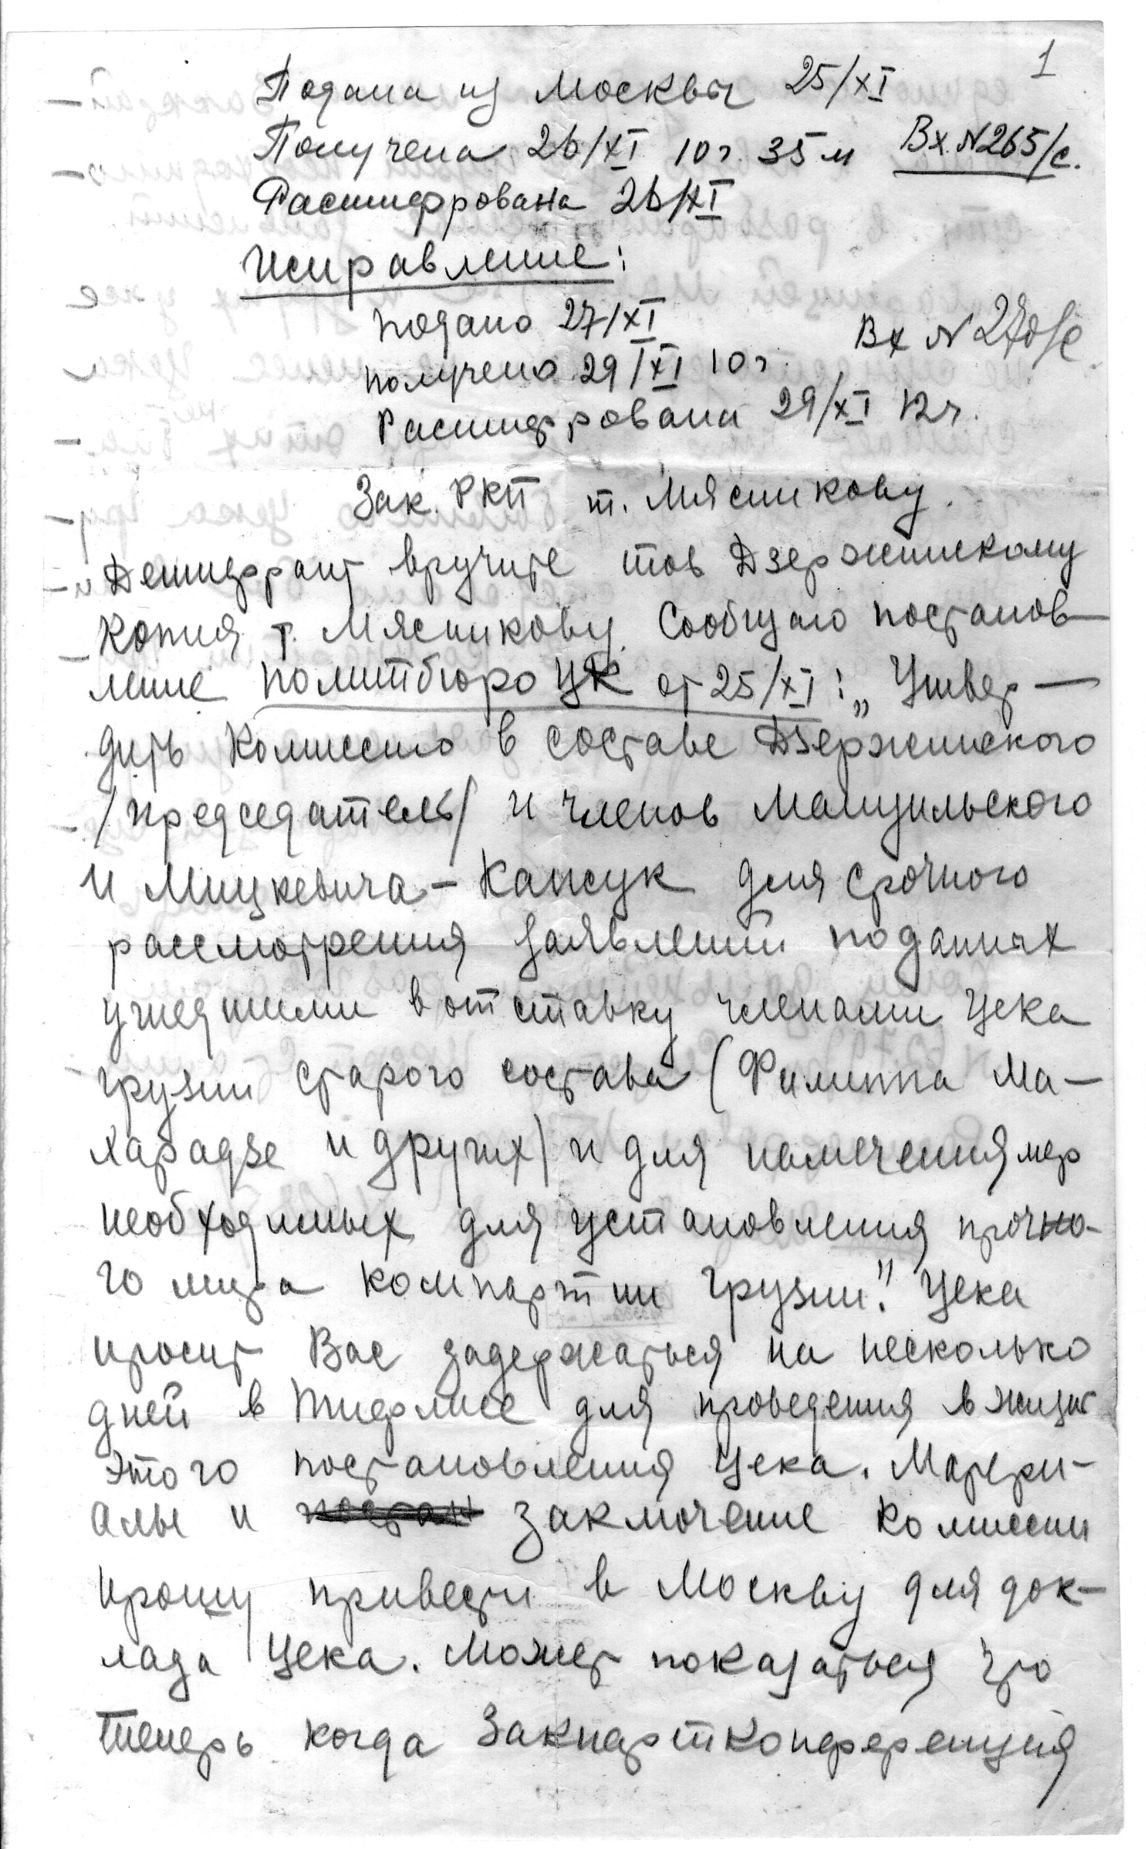 1
Подана из Москвы 25/XI
Получена 26/XI 10 ч. 35 м Вх. N 265/с.
Расшифрована 26/XI
Исправление:
подано 27/XI
Вх N 270/с.
получено 29/XI 10 ч
Расшифрована 29/XI 12 ч.
Зак. РКП т. Мясникову.
Дешифрант вручите тов Дзержинскому
Копия т. Мясникову. Сообщаю постанов-
ление политбюро ЦК от 25/XI: „Утвер-
дить Комиссию в составе Дзержинского
/председатель/ и членов Мануильского
и Мицкевича-Капсук для срочного
рассмотрения заявлений поданных
ушедшими в отставку членами Цека
Грузии старого состава (Филиппа Ма-
харадзе и других) и для намечения мер
необходимых для установления прочно-
го мира Компартии Грузии." Цека
просит Вас задержаться на несколько
дней в Тифлисе для проведения в жизнь
этого постановления Цека. Матери-
алы и заключение комиссии
прошу привезти в Москву для док-
лада Цека. Может показаться что
теперь когда Закпартконференция